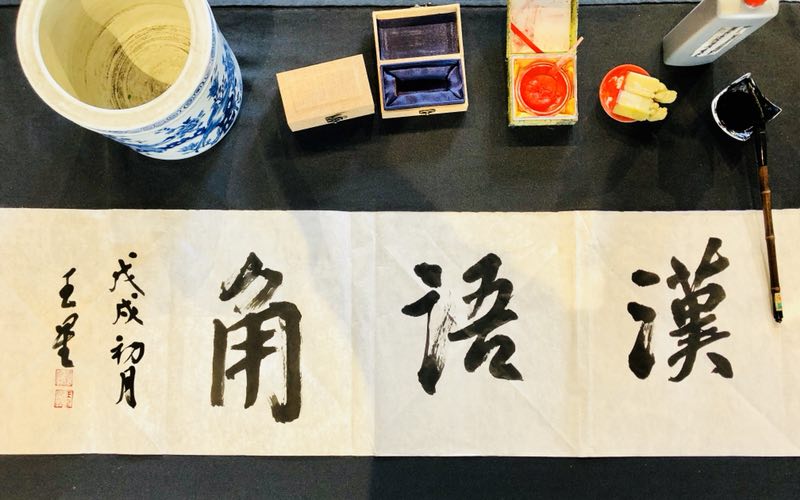 漢語角
戊戌初月
王星